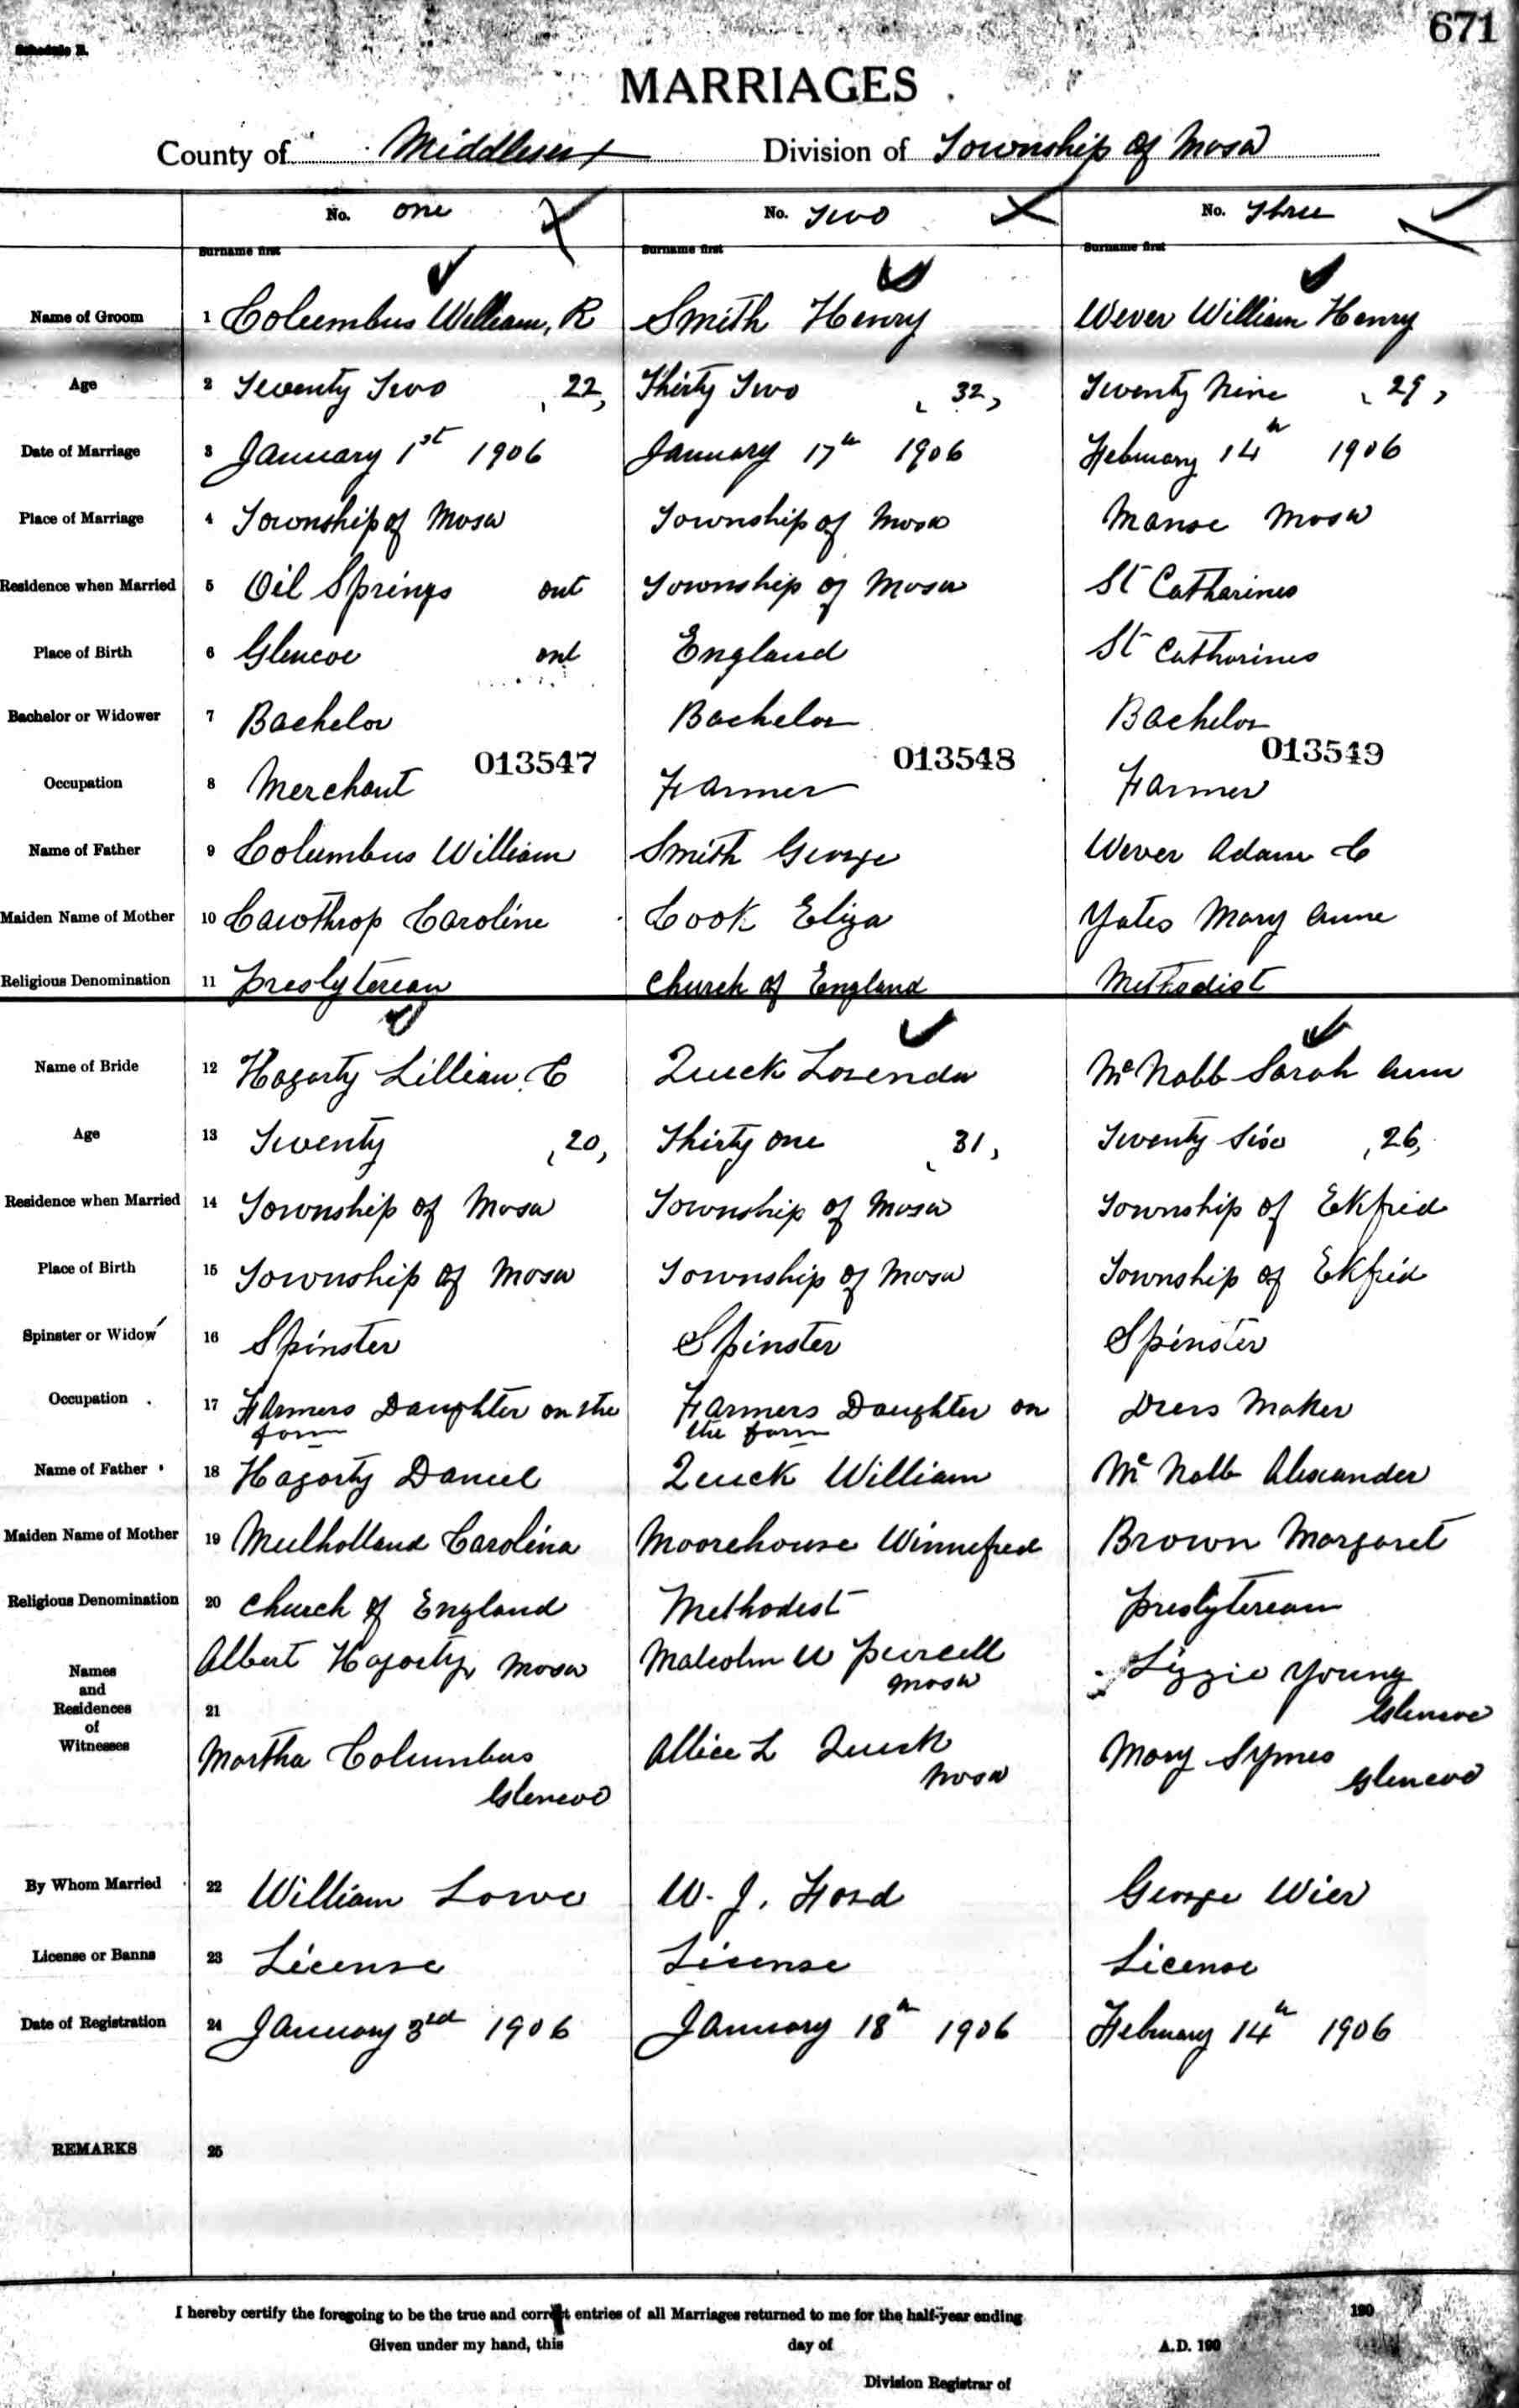 671
Schedule B.
MARRIAGES
County of Middlesex Division of Township of Mosa
No. One No. Two No. Three
Surname first Surname first Surname first
Name of Groom 1 Columbus William, R Smith Henry Wever William Henry
Age 2 Twenty Two (22) Thirty Two (32) Twenty Nine (29)
Date of Marriage 3 January 1st 1906 January 17th 1906 February 14th 1906
Place of Marriage 4 Township of Mosa Township of Mosa Manse Mosa
Residence when Married 5 Oil Springs Ont Township of Mosa St Catharines
Place of Birth 6 Glencoe Ont England St Catharines
Bachelor or Widower 7 Bachelor Bachelor Bachelor
013547 013548 013549
Occupation 8 Merchant Farmer Farmer
Name of Father 9 Columbus William Smith George Wever Adam C
Maiden Name of Mother 10 Cawthrop Caroline Cook Eliza Yates Mary Anne
Religious Denomination 11 Presbyterean Church of England Methodist
Name of Bride 12 Hagarty Lillian. C Quick Lorenda McNabb Sarah Ann
Age 13 Twenty (20) Thirty one (31) Twenty Six (26)
Residence when Married 14 Township of Mosa Township of Mosa Township of Ekfrid
Place of Birth 15 Township of Mosa Township of Mosa Township of Ekfrid
Spinster or Widow 16 Spinster Spinster Spinster
Occupation 17 Farmers Daughter on the Farmers Daughter on Dress Maker
farm the farm
Name of Father 18 Hagarty Daniel Quick William McNabb Alexander
Maiden Name of Mother 19 Mulholland Carolina Moorehouse Winnefred Brown Margaret
Religious Denomination 20 Church of England Methodist Presbyterean
Names and Residences of Witnesses 21
Albert Hagarty Mosa Malcolm W Purcell Lizzie Young
Mosa Glencoe
Martha Columbus Allice L Quick Mary Symes
Glencoe Mosa Glencoe
By Whom Married 22 William Lowe W. J. Ford George Wier
License or Banns 23 License License License
Date of Registration 24 January 3rd 1906 January 18th 1906 February 14th 1906
REMARKS 25
I hereby certify the foregoing to be the true and correct entries of all Marriages returned to me for the half-year ending 190
Given under my hand, this day of A.D. 190
Division Registrar of